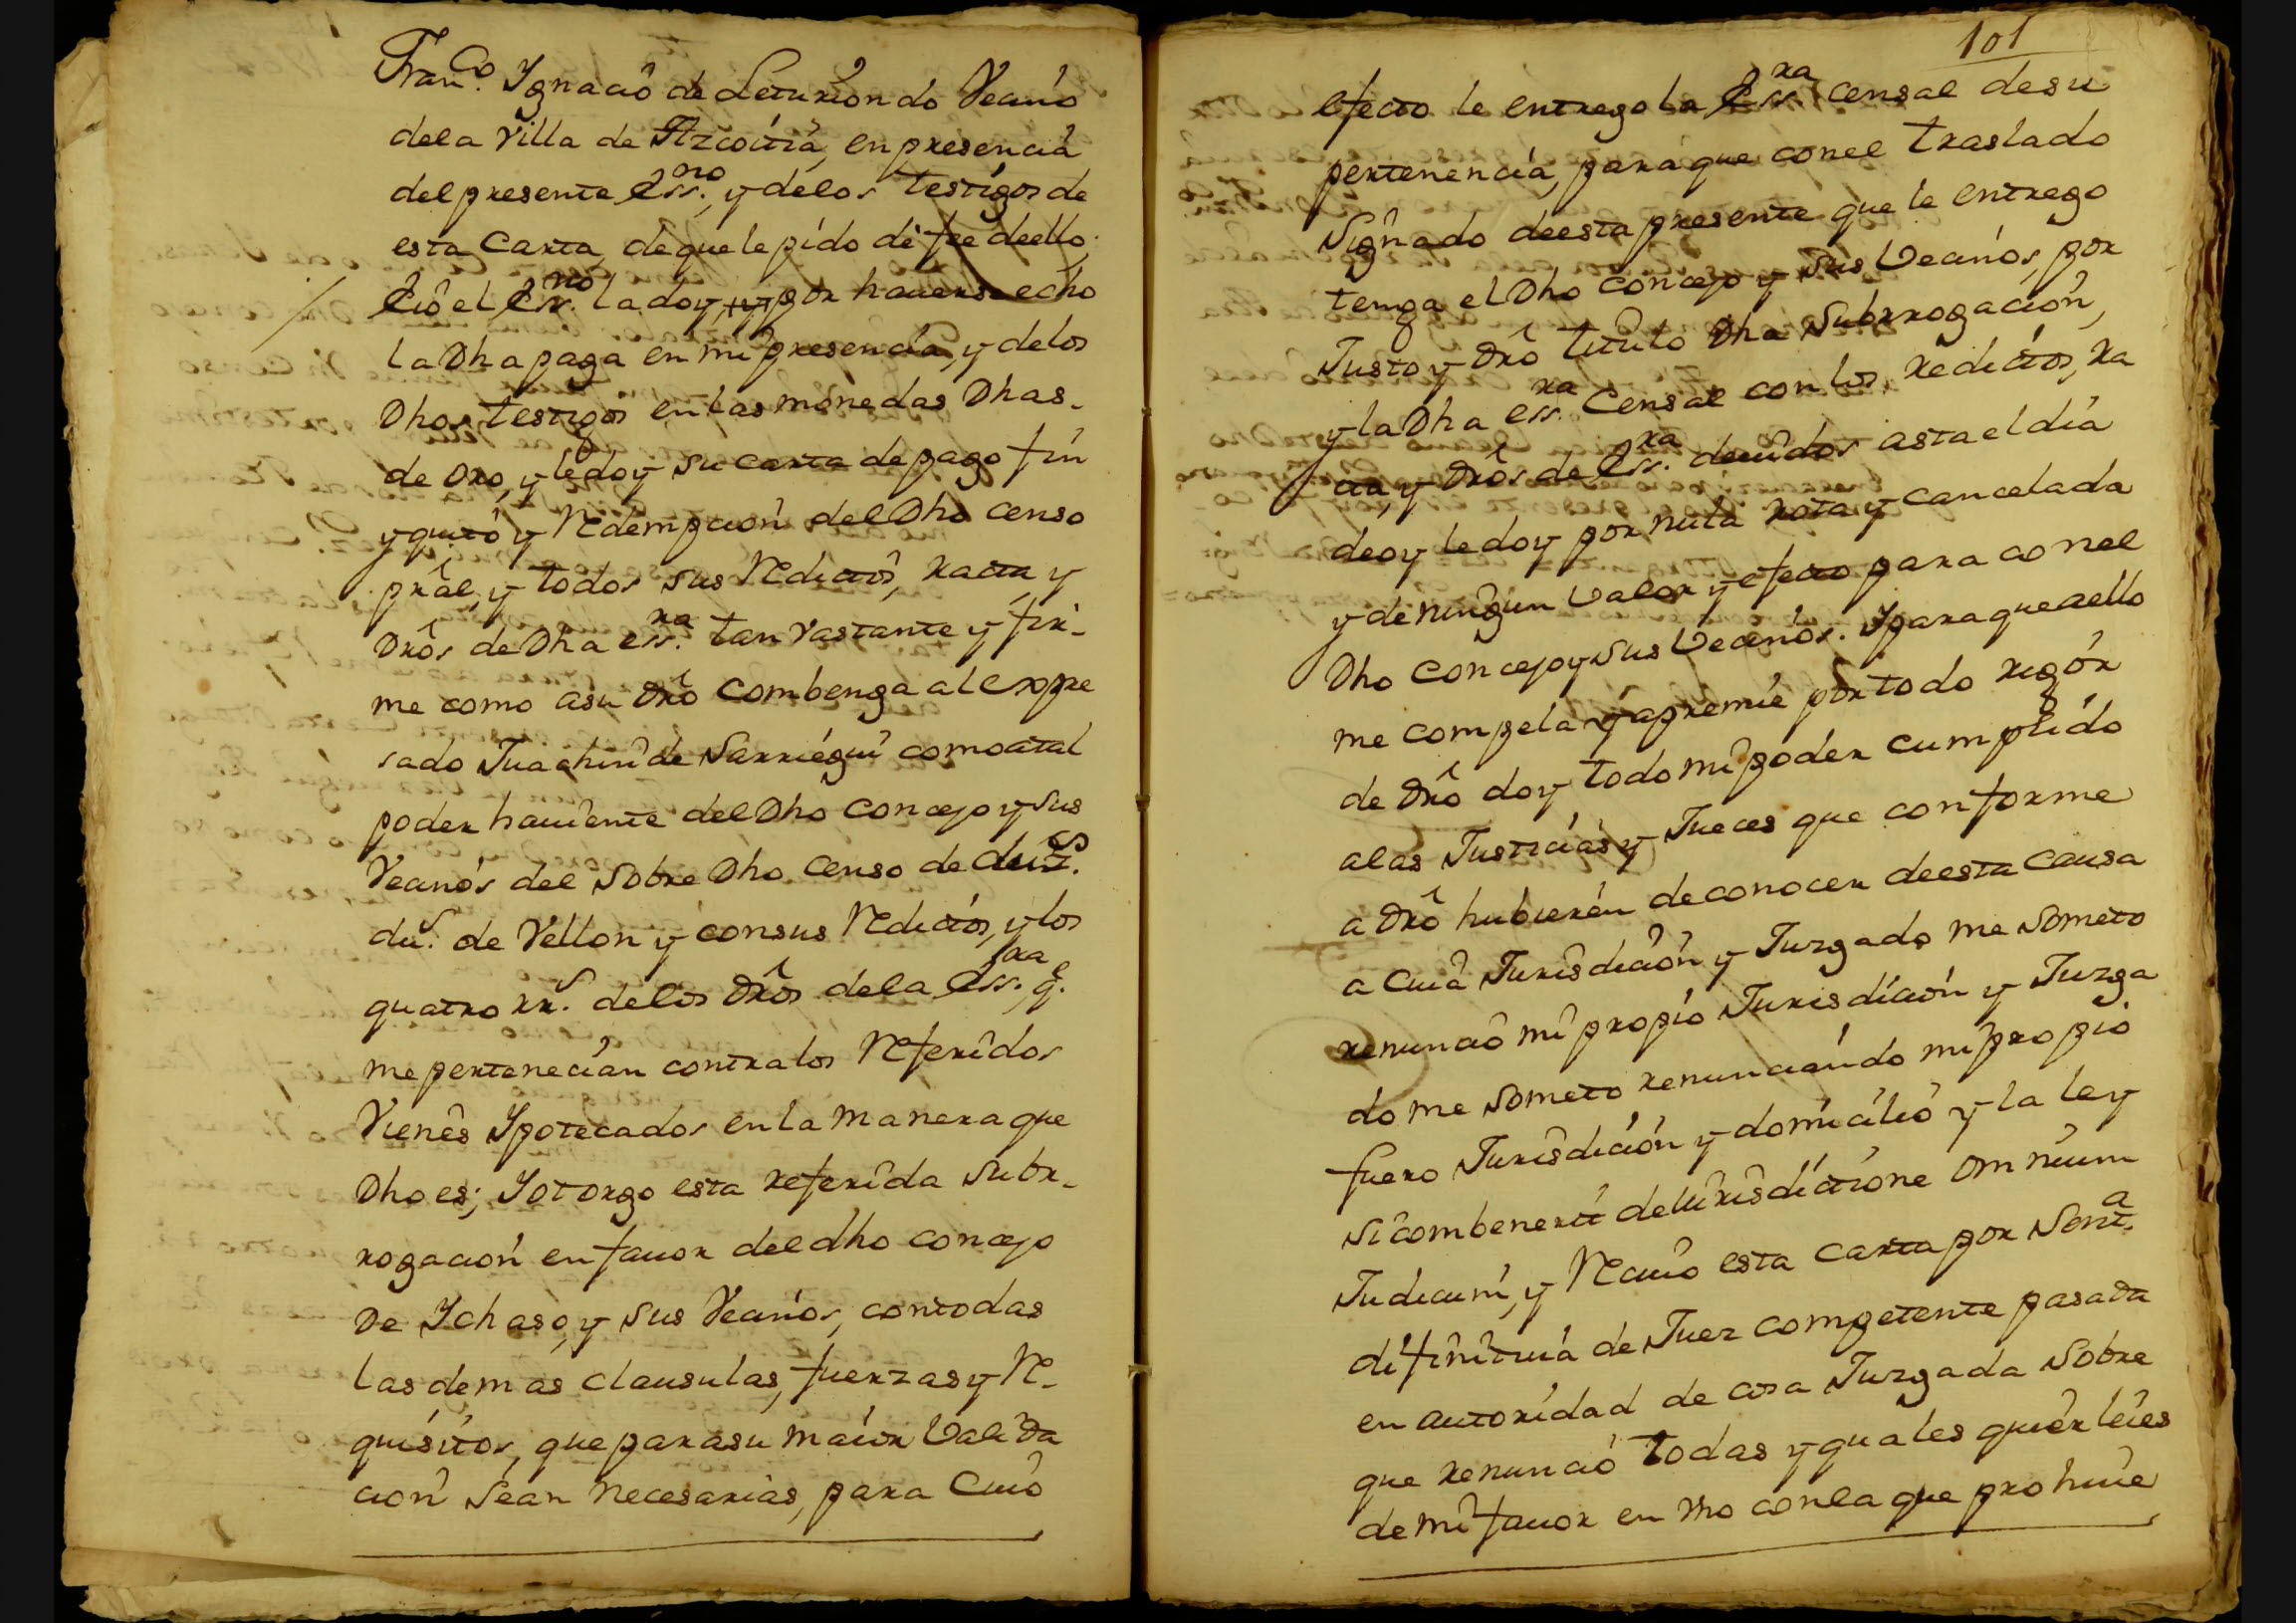 Fran.co Ygnacio de Leturiondo Vecino
dela Villa de Azcoitia, en presencia
del presente ess.no y delos testigos de
esta Carta, de que le pido dè fee deello;
Eió el Ess.no la doy, por hauerse echo
la Dha paga en mi presencia, y delos
Dhos testigos en las mònedas Dhas.
de oro, y le doy su carta de pago fin
y quitò y Redempcion del Dho censo
prâl, y todos sus Redictos, racta y
Drôs de Dha ess.ra tan vastante y fir-
me como asu Drô Combenga al expre
sado Juachin de Sarriégui como atal
poder hauiente del Dho Concejo y sus
Vecinòs del Sobre Dho Censo de
du.s de Vellon y consus Redictos, y los
quatro rr.s delos Drôs dela Ess.ra q.e
me pertenecian contralos Referidos
Vienes Ypotecados en la manera que
Dho es; Y otorgo esta referida Subr-
rogacion enfauor del dho concejo
De Ychaso, y sus Vecinòs, contodas
las demas clausulas, fuerzas y Re-
quisitos, que parasu maior Valida
cion Sean necesarias, para Cuio
101
efecto le entrego la Ess.ra Censal desu
pertenencia, paraque conel traslado
Signado deesta presente que le entrego
tenga el Dho Concejo y sus Vecinòs, por
Justo y Drô titulo Dha Subrrogacion,
y la Dha ess.ra Censal con los redictos, ra
cta, y Drôs de Ess.ra deuidos asta el dia
deoy le doy por nula rota y cancelada
y de ningun Valor y efecto para conel
Dho Concejo y sus Vecinòs. Y paraque aello
me compela y apremie por todo rigòr
de Drô doy todo mi poder cumplido
alas Justicias y Jueces que conforme
a Drô hubieren de conocer deesta Causa
a Cuia Jurisdicion y Juzgado me Someto
renuncio mi propio Jurisdicion y Juzga
do me Someto renunciando mi propio
fuero Jurisdicion y domicilio y la ley
Sicombenerit deiurisdictione omnium
Judicum, y Reciuo esta Carta por Sent.a
difinitiua de Juez competente pasada
en autoridad de cosa Juzgada Sobre
que renunciò todas y quales quièr leies
de mi fauor en vno conla que prohiue